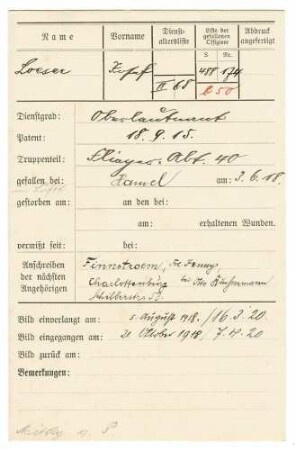 Name Vorname Dienst-
altersliste Liste der
gefallenen
Offiziere Abdruck
angefertigt
S. Nr.
Loeser Josef II 68 488 174
E 50
Dienstgrad: Oberleutnant
Patent: 18. 9. 15.
Truppenteil: Flieger-Abt. 40
gefallen bei: Hamel am: 3. 6. 18.
gestorben am: an den bei:
am: erhaltenen Wunden.
vermißt seit: bei:
Anschreiben
der nächsten
Angehörigen
Finnstroem, Frl. Fanny
Charlottenburg bei Otto
Bild einverlangt am: 5. August 1918. / 16. 3. 20.
Bild eingegangen am: 21. Oktober 1918, 7. 4. 20
Bild zurück am:
Bemerkungen: